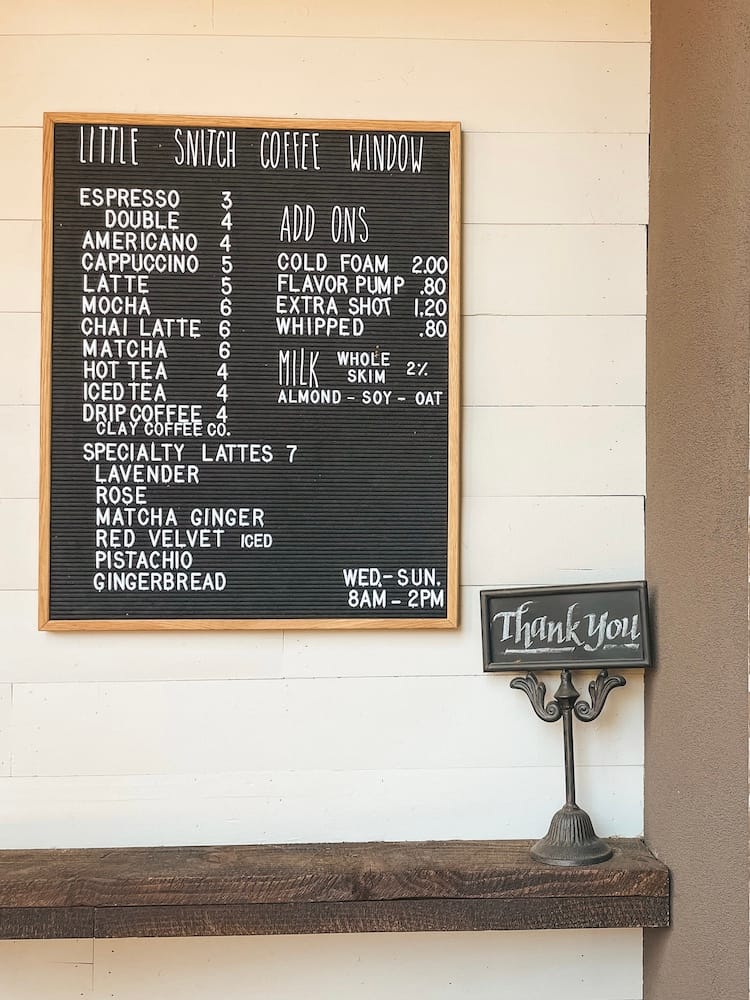 LITTLE SNITCH COFFEE WINDOW
ESPRESSO 3
DOUBLE 4
AMERICANO 4
CAPPUCCINO 5
LATTE 5
MOCHA 6
CHAI LATTE 6
MATCHA 6
HOT TEA 4
ICED TEA 4
DRIP COFFEE 4
CLAY COFFEE CO.
SPECIALTY LATTES 7
LAVENDER
ROSE
MATCHA GINGER
RED VELVET ICED
PISTACHIO
GINGERBREAD
ADD ONS
COLD FOAM 2.00
FLAVOR PUMP .80
EXTRA SHOT 1.20
WHIPPED .80
MILK WHOLE 2%
SKIM
ALMOND - SOY - OAT
WED.-SUN.
8AM-2PM
Thank You